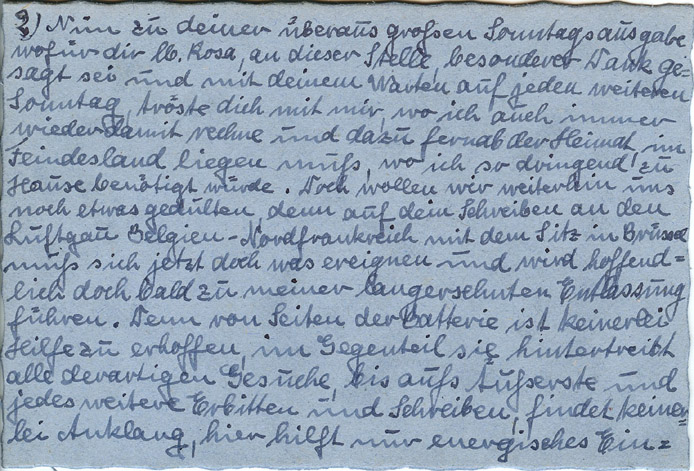 3.) Nun zu deiner überaus großen Sonntagsausgabe
wofür dir lb. Rosa, an dieser Stelle, besonderer Dank ge-
sagt sei und mit deinem Warten auf jeden weiteren
Sonntag, tröste dich mit mir, wo ich auch immer
wieder damit rechne und dazu fernab der Heimat im
Feindesland liegen muß, wo ich so dringend zu
Hause benötigt würde. Doch wollen wir weiterhin uns
noch etwas gedulten, denn auf dein Schreiben an den
Luftgau Belgien-Nordfrankreich mit dem Sitz in Brüssel
muß sich jetzt doch was ereignen und wird hoffend=
lich doch bald zu meiner langersehnten Entlassung
führen. Denn von Seiten der Batterie ist keinerlei
Hilfe zu erhoffen, im Gegenteil sie hintertreibt
alle derartigen Gesuche bis aufs Äußerste und
jedes weitere Erbitten und Schreiben, findet keiner-
lei Anklang, hier hilft nur energisches Ein=